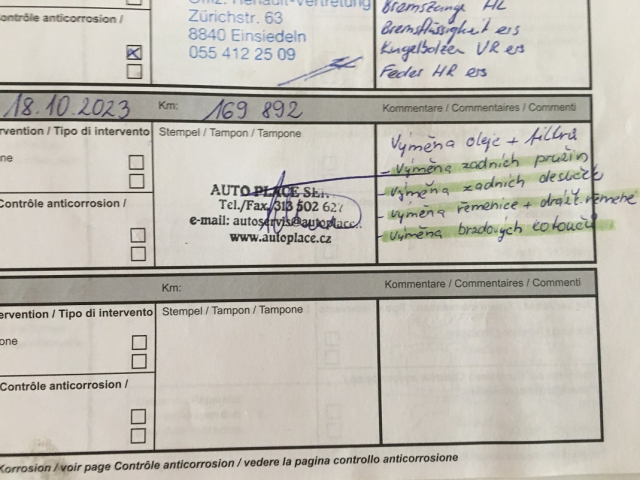 Offiz. Renault-Vertretung
Zürichstr. 63
8840 Einsiedeln
055 412 25 09
Bremszange HR
Bremsflüssigkeit ers
Kugelbolzen VR ers
Feder HR ers
Contrôle anticorrosion /
18.10.2023
Km: 169 892
Kommentare / Commentaires / Commenti
rvention / Tipo di intervento
Stempel / Tampon / Tampone
ne
Contrôle anticorrosion /
AUTO PLACE
Tel./Fax. 313 502 627
e-mail: autoservis@autoplace.
www.autoplace.cz
Výměna oleje + filtrů
- Výměna zadních pružin
- Výměna zadních desticek
- Výměna řemenice + drážk. řemene
- Výměna brzdových kotoučů
Km:
Kommentare / Commentaires / Commenti
ervention / Tipo di intervento
Stempel / Tampon / Tampone
one
Contrôle anticorrosion /
Korrosion / voir page Contrôle anticorrosion / vedere la pagina controllo anticorrosione